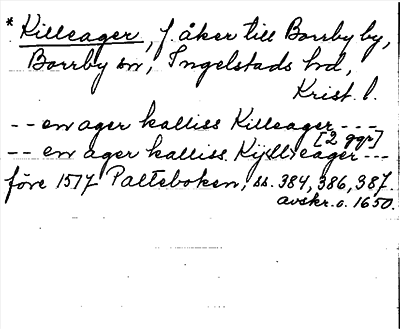 * Killeager, f. åker till Borrby by,
Borrby sn, Ingelstads hd,
Krist. l.
-- en ager kalliss Killeager ---
[2 ggr]
-- en ager kalliss Kijlleager ---
före 1517 Palteboken, ss. 384, 386, 387.
avskr. o. 1650.